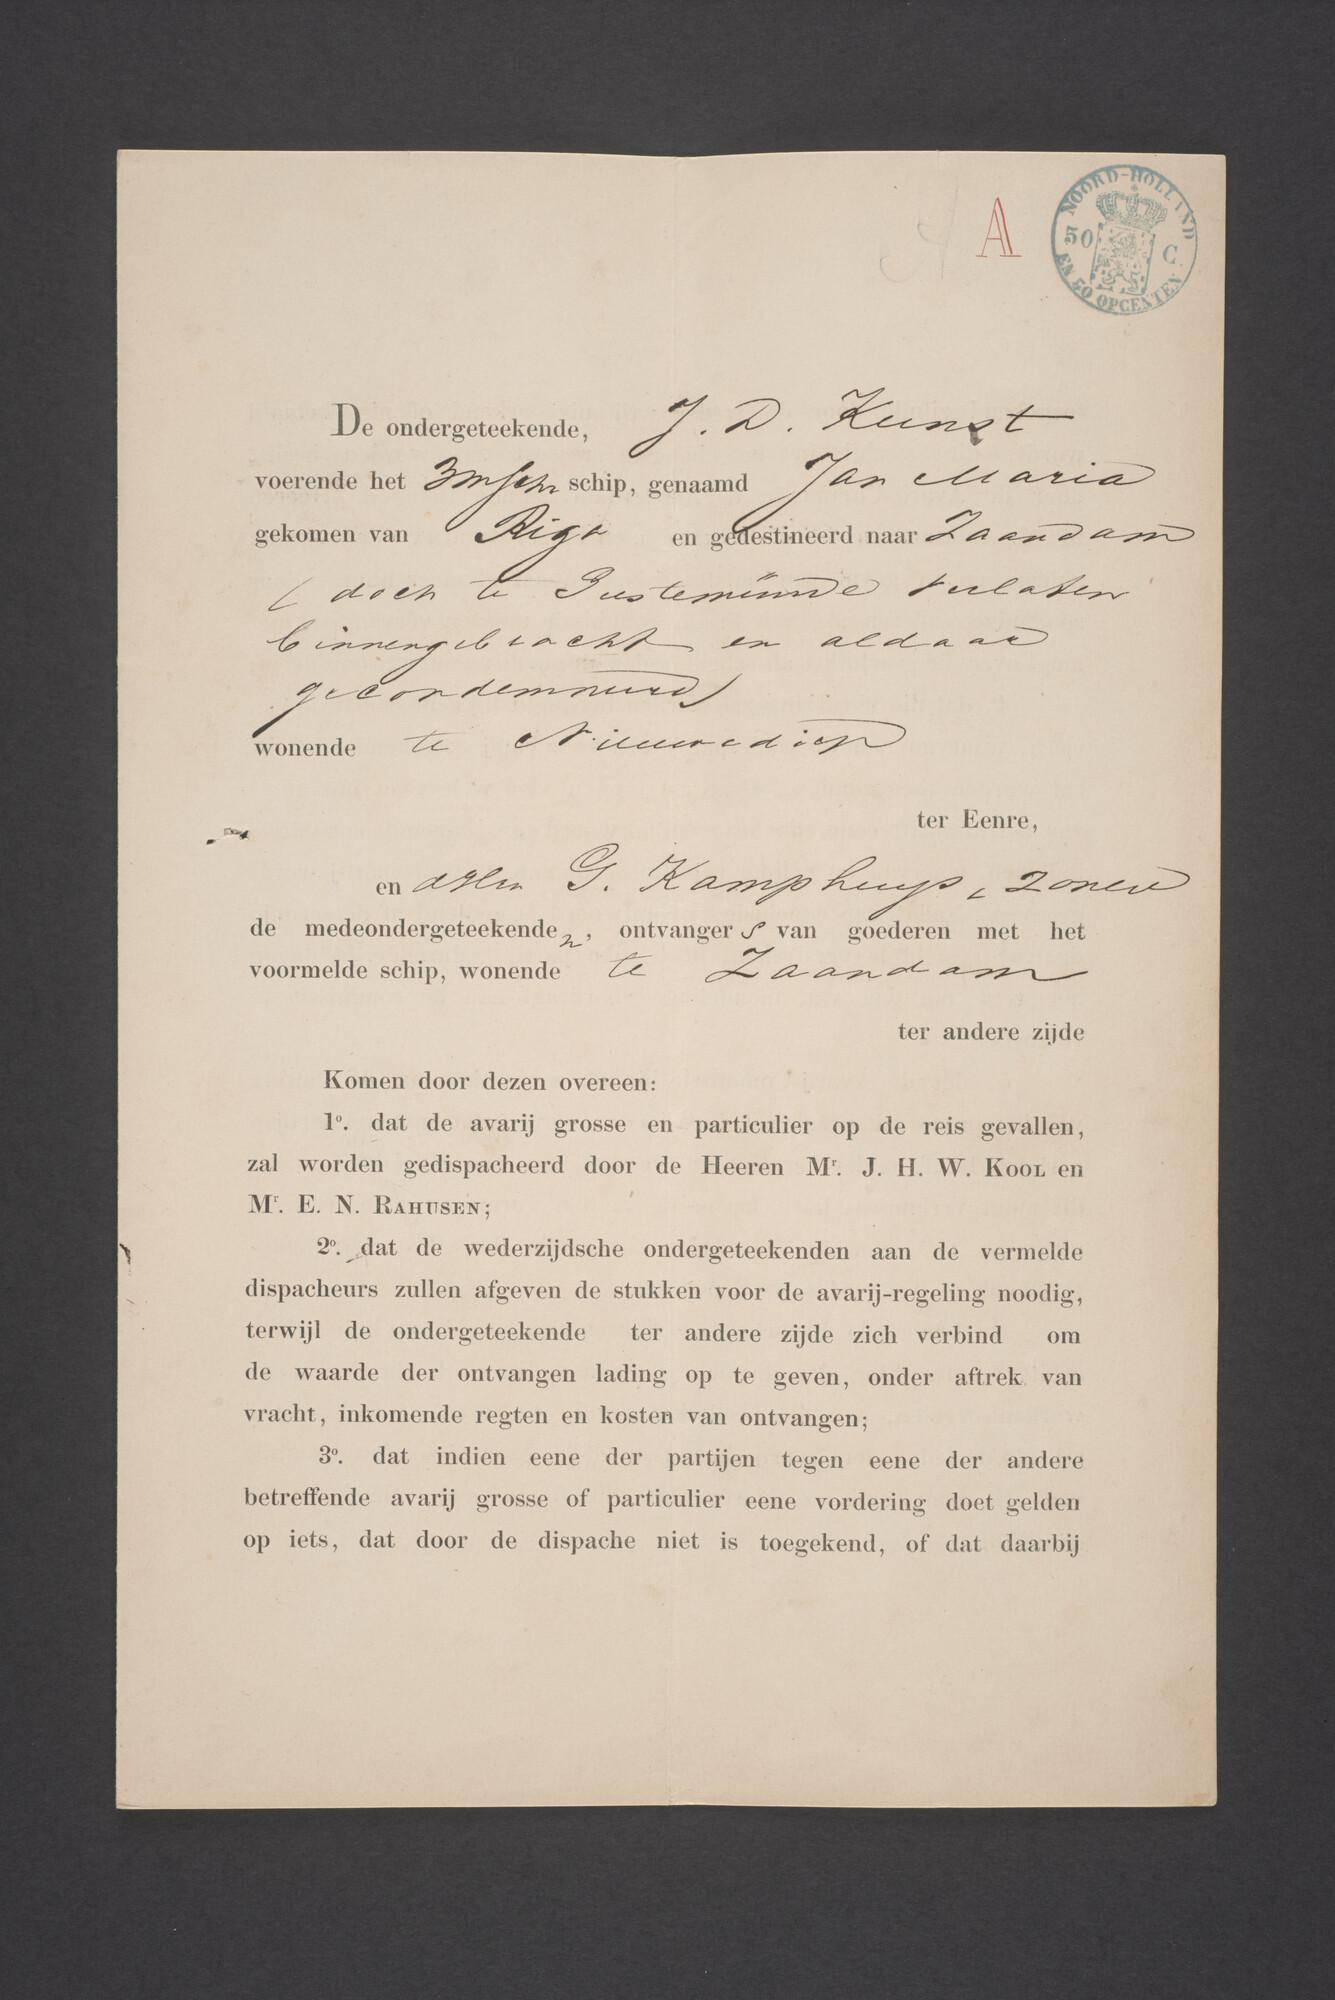 A
NOORD-HOLLAND
50 C.
EN 50 OPCENTEN
De ondergeteekende, J. D. Kunst
voerende het 3mschr schip, genaamd Jan Maria
gekomen van Riga en gedestineerd naar Zaandam
(doch te Geestemünde verlaten
binnengebracht en aldaar
gecondemneerd)
wonende te Nieuwediep
ter Eenre,
en G. Kamphuys & Zonen
de medeondergeteekenden, ontvangers van goederen met het
voormelde schip, wonende te Zaandam
ter andere zijde
Komen door dezen overeen:
1o. dat de avarij grosse en particulier op de reis gevallen,
zal worden gedispacheerd door de Heeren Mr. J. H. W. Kool en
Mr. E. N. Rahusen;
2o. dat de wederzijdsche ondergeteekenden aan de vermelde
dispacheurs zullen afgeven de stukken voor de avarij-regeling noodig,
terwijl de ondergeteekende ter andere zijde zich verbind om
de waarde der ontvangen lading op te geven, onder aftrek van
vracht, inkomende regten en kosten van ontvangen;
3o. dat indien eene der partijen tegen eene der andere
betreffende avarij grosse of particulier eene vordering doet gelden
op iets, dat door de dispache niet is toegekend, of dat daarbij